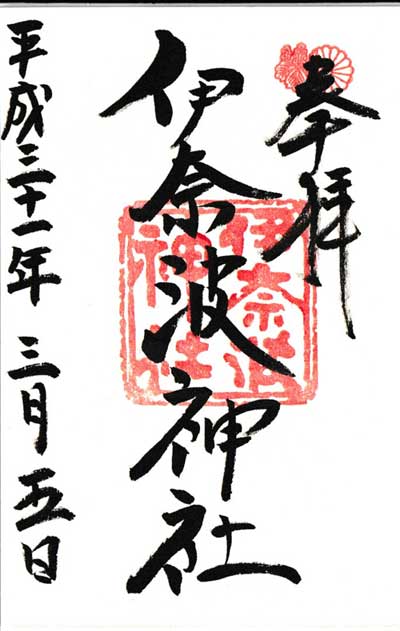 奉拝
伊奈波神社
伊奈波
神社
平成三十一年 三月五日